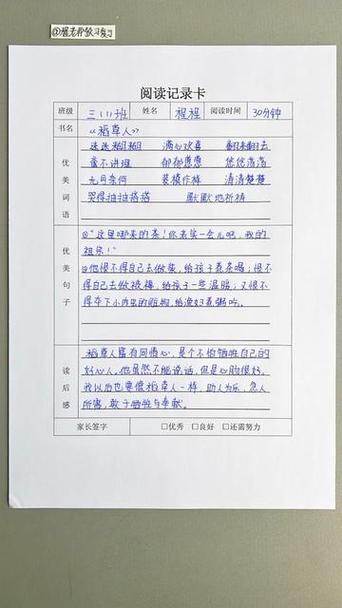 阅读记录卡
班级 三(1)班 姓名 程程 阅读时间 30分钟
书名 《稻草人》
优美词语
迷迷糊糊 满心欢喜 翻来翻去
蛮不讲理 郁郁葱葱 悠悠荡荡
无可奈何 装模作样 清清楚楚
哭得抽抽搭搭 默默地祈祷
优美句子
①“这里哪来的茶!你去荣一会儿吧,我的
祖宗!”
②他恨不得自己去做柴,给孩子煮茶喝;恨不
得自己去做被褥,给孩子一些温暖;又恨不
得夺下小肉虫的赃物,给渔妇煮粥吃。
读后感
稻草人富有同情心,是个不怕牺牲自己的
好心人。他虽然不能说话,但是心肠很好。
我以后也要像稻草人一样,助人为乐,急人
所害,敢于牺牲与奉献。
家长签字 □优秀 □良好 □还需努力